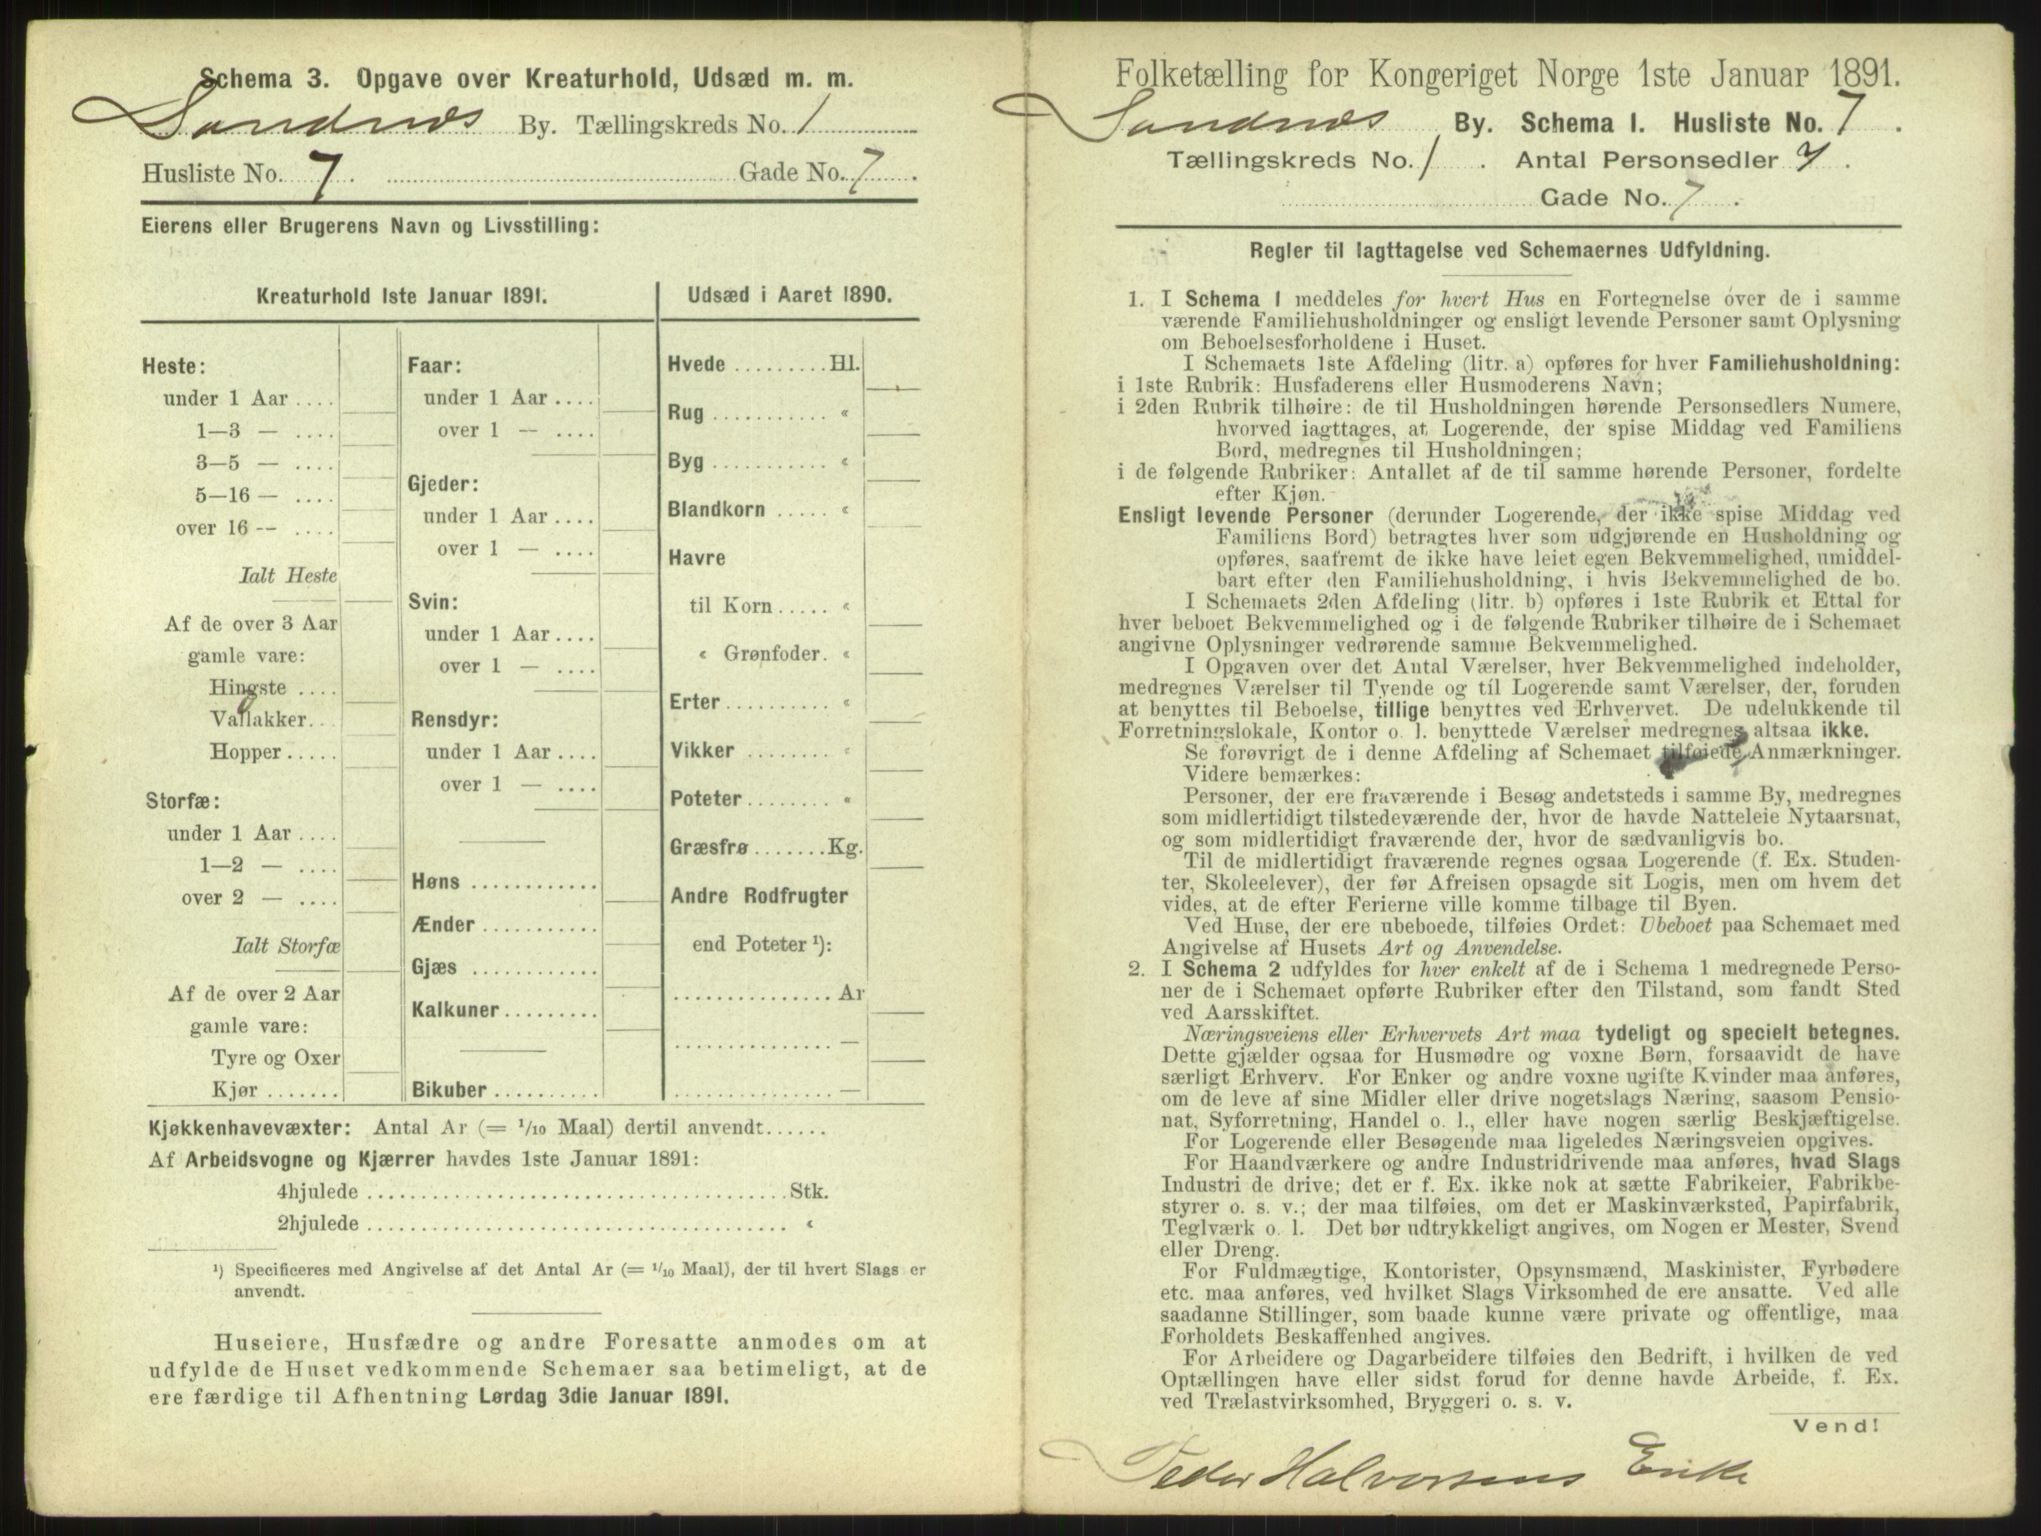 Schema 3. Opgave over Kreaturhold, Udsæd m. m.
Sandnæs By. Tællingskreds No. 1
Husliste No. 7. Gade No. 7.
Eierens eller Brugerens Navn og Livsstilling:
Kreaturhold 1ste Januar 1891.
Heste:
under 1 Aar ....
1—3 — ....
3—5 — ....
5—16 — ....
over 16 -- ....
Ialt Heste
Af de over 3 Aar
gamle vare:
Hingste ....
Vallakker...
Hopper.....
Storfæ:
under 1 Aar ....
1—2 — ....
over 2 — ....
Ialt Storfæ
Af de over 2 Aar
gamle vare:
Tyre og Oxer
Kjør .......
Faar:
under 1 Aar ....
over 1 — ....
Gjeder:
under 1 Aar ....
over 1 — ....
Svin:
under 1 Aar ....
over 1 — ....
Rensdyr:
under 1 Aar ....
over 1 — ....
Høns ............
Ænder ...........
Gjæs ............
Kalkuner.........
Bikuber..........
Udsæd i Aaret 1890.
Hvede .........Hl.
Rug ........... “
Byg ........... “
Blandkorn ..... “
Havre
til Korn ..... “
“ Grønfoder. “
Erter.......... “
Vikker ........ “
Poteter........ “
Græsfrø.......Kg.
Andre Rodfrugter
end Poteter ¹):
...............Ar
............... —
............... —
Kjøkkenhavevæxter: Antal Ar (= 1/10 Maal) dertil anvendt......
Af Arbeidsvogne og Kjærrer havdes 1ste Januar 1891:
4hjulede .......................................Stk.
2hjulede ....................................... “
¹) Specificeres med Angivelse af det Antal Ar (= 1/10 Maal), der til hvert Slags er
anvendt.
Huseiere, Husfædre og andre Foresatte anmodes om at
udfylde de Huset vedkommende Schemaer saa betimeligt, at de
ere færdige til Afhentning Lørdag 3die Januar 1891.
Folketælling for Kongeriget Norge 1ste Januar 1891.
Sandnæs By. Schema 1. Husliste No. 7.
Tællingskreds No. 1. Antal Personsedler 7.
Gade No. 7.
Regler til Iagttagelse ved Schemaernes Udfyldning.
1. I Schema 1 meddeles for hvert Hus en Fortegnelse over de i samme
værende Familiehusholdninger og ensligt levende Personer samt Oplysning
om Beboelsesforholdene i Huset.
I Schemaets 1ste Afdeling (litr. a) opføres for hver Familiehusholdning:
i 1ste Rubrik: Husfaderens eller Husmoderens Navn;
i 2den Rubrik tilhøire: de til Husholdningen hørende Personsedlers Numere,
hvorved iagttages, at Logerende, der spise Middag ved Familiens
Bord, medregnes til Husholdningen;
i de følgende Rubriker: Antallet af de til samme hørende Personer, fordelte
efter Kjøn.
Ensligt levende Personer (derunder Logerende, der ikke spise Middag ved
Familiens Bord) betragtes hver som udgjørende en Husholdning og
opføres, saafremt de ikke have leiet egen Bekvemmelighed, umiddel-
bart efter den Familiehusholdning, i hvis Bekvemmelighed de bo.
I Schemaets 2den Afdeling (litr. b) opføres i 1ste Rubrik et Ettal for
hver beboet Bekvemmelighed og i de følgende Rubriker tilhøire de i Schemaet
angivne Oplysninger vedrørende samme Bekvemmelighed.
I Opgaven over det Antal Værelser, hver Bekvemmelighed indeholder,
medregnes Værelser til Tyende og til Logerende samt Værelser, der, foruden
at benyttes til Beboelse, tillige benyttes ved Erhvervet. De udelukkende til
Forretningslokale, Kontor o. l. benyttede Værelser medregnes altsaa ikke.
Se forøvrigt de i denne Afdeling af Schemaet tilføiede Anmærkninger.
Videre bemærkes:
Personer, der ere fraværende i Besøg andetsteds i samme By, medregnes
som midlertidigt tilstedeværende der, hvor de havde Natteleie Nytaarsnat,
og som midlertidigt fraværende der, hvor de sædvanligvis bo.
Til de midlertidigt fraværende regnes ogsaa Logerende (f. Ex. Studen-
ter, Skoleelever), der før Afreisen opsagde sit Logis, men om hvem det
vides, at de efter Ferierne ville komme tilbage til Byen.
Ved Huse, der ere ubeboede, tilføies Ordet: Ubeboet paa Schemaet med
Angivelse af Husets Art og Anvendelse.
2. I Schema 2 udfyldes for hver enkelt af de i Schema 1 medregnede Perso-
ner de i Schemaet opførte Rubriker efter den Tilstand, som fandt Sted
ved Aarsskiftet.
Næringsveiens eller Erhvervets Art maa tydeligt og specielt betegnes.
Dette gjælder ogsaa for Husmødre og voxne Børn, forsaavidt de have
særligt Erhverv. For Enker og andre voxne ugifte Kvinder maa anføres,
om de leve af sine Midler eller drive nogetslags Næring, saasom Pensio-
nat, Syforretning, Handel o. l., eller have nogen særlig Beskjæftigelse.
For Logerende eller Besøgende maa ligeledes Næringsveien opgives.
For Haandværkere og andre Industridrivende maa anføres, hvad Slags
Industri de drive; det er f. Ex. ikke nok at sætte Fabrikeier, Fabrikbe-
styrer o. s. v.; der maa tilføies, om det er Maskinværksted, Papirfabrik,
Teglværk o. l. Det bør udtrykkeligt angives, om Nogen er Mester, Svend
eller Dreng.
For Fuldmægtige, Kontorister, Opsynsmænd, Maskinister, Fyrbødere
etc. maa anføres, ved hvilket Slags Virksomhed de ere ansatte. Ved alle
saadanne Stillinger, som baade kunne være private og offentlige, maa
Forholdets Beskaffenhed angives.
For Arbeidere og Dagarbeidere tilføies den Bedrift, i hvilken de ved
Optællingen have eller sidst forud for denne havde Arbeide, f. Ex.
ved Trælastvirksomhed, Bryggeri o. s. v.
Vend!
Peder Halvorsens Enke